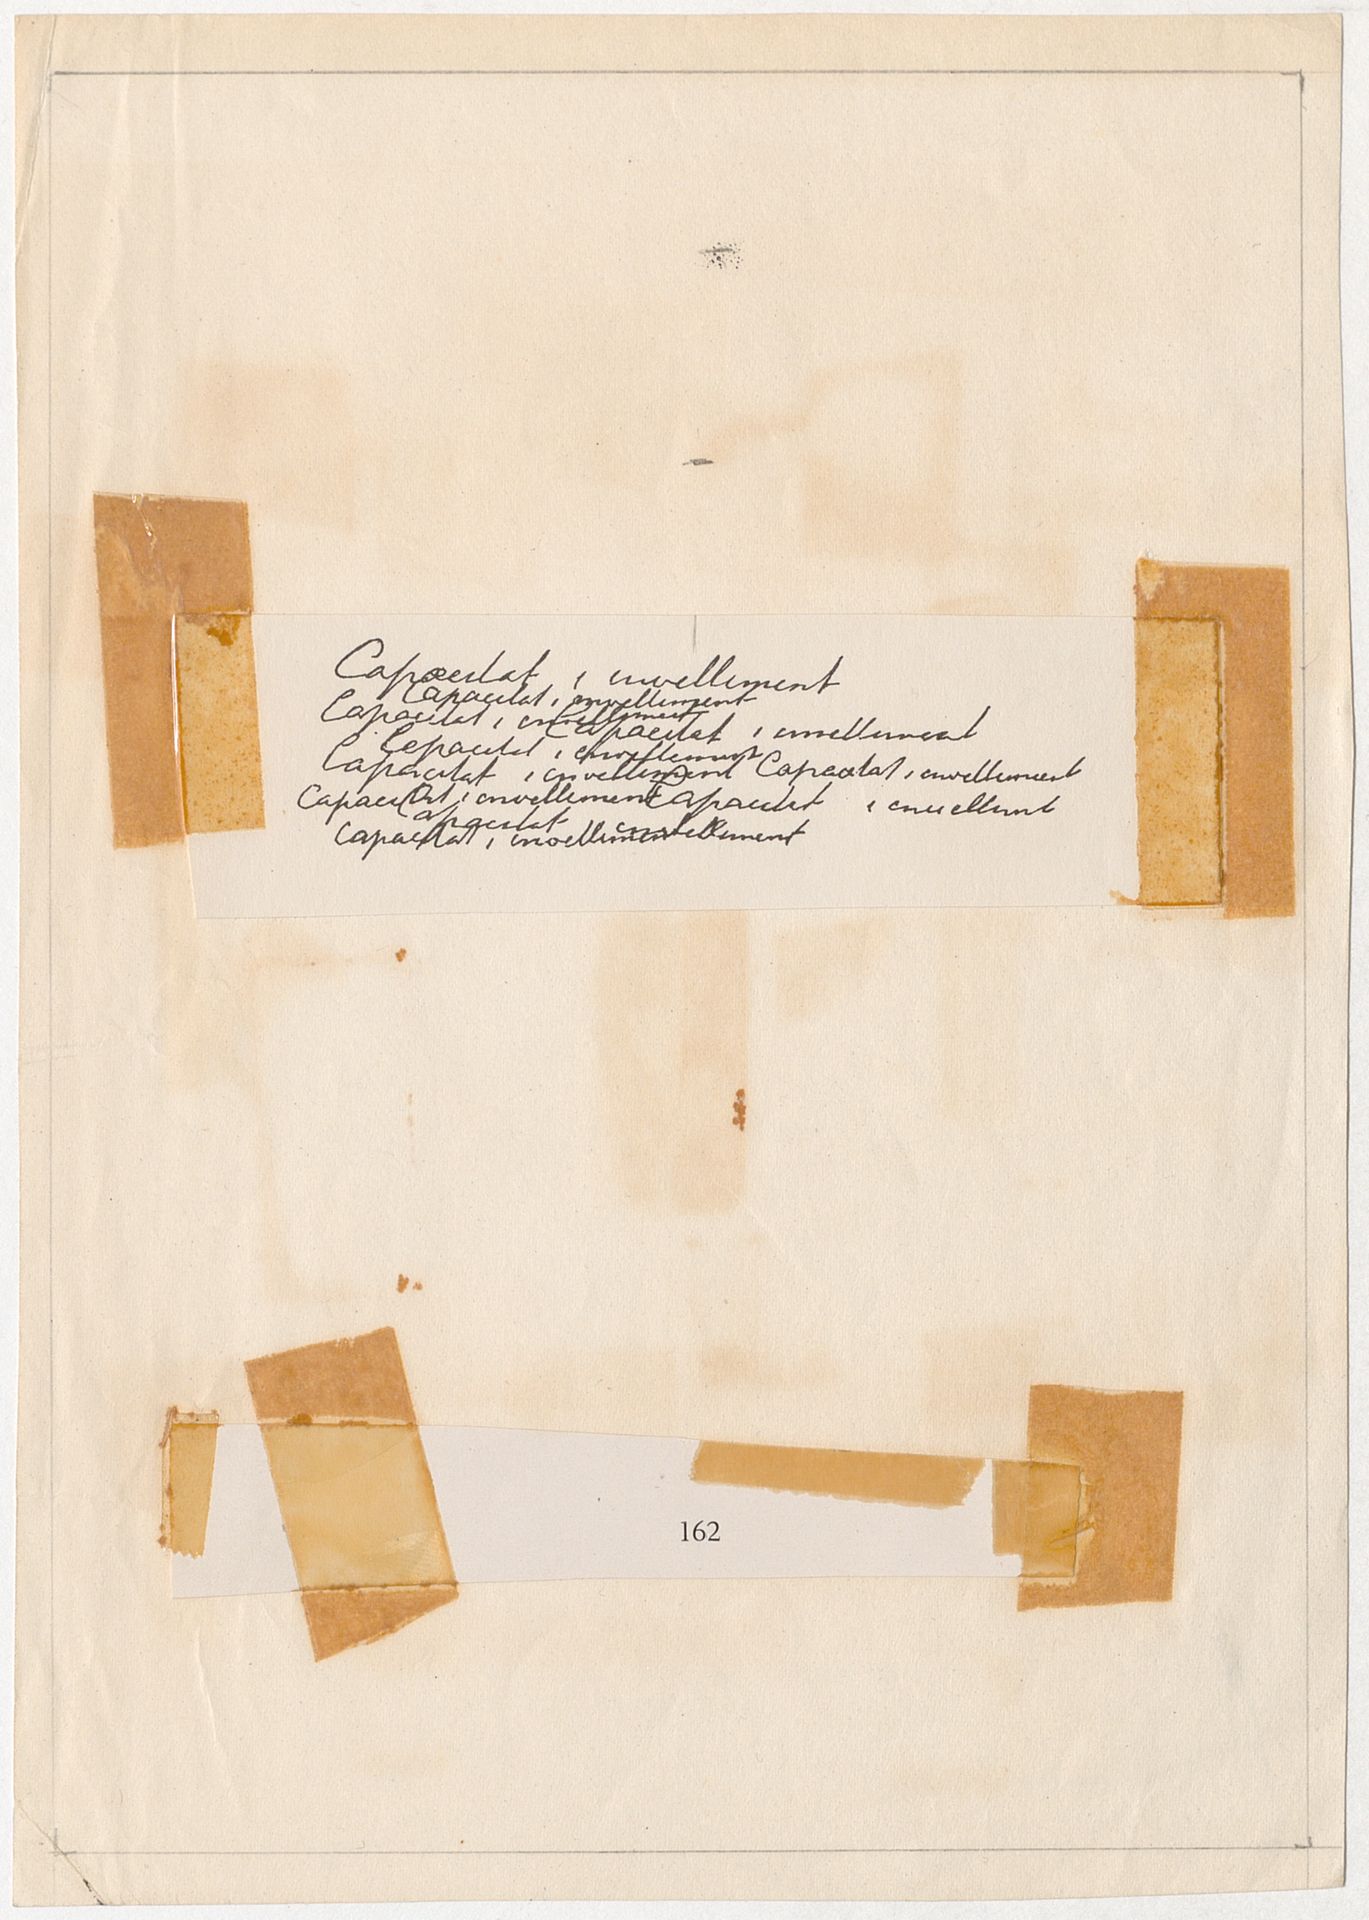 Capacitat i envelliment
Capacitat i envelliment
Capacitat i envelliment
Capacitat i envelliment
Capacitat i envelliment
Capacitat i envelliment Capacitat i envelliment
Capacitat i envelliment Capacitat i envelliment
Capacitat envelliment
Capacitat i envelliment
162